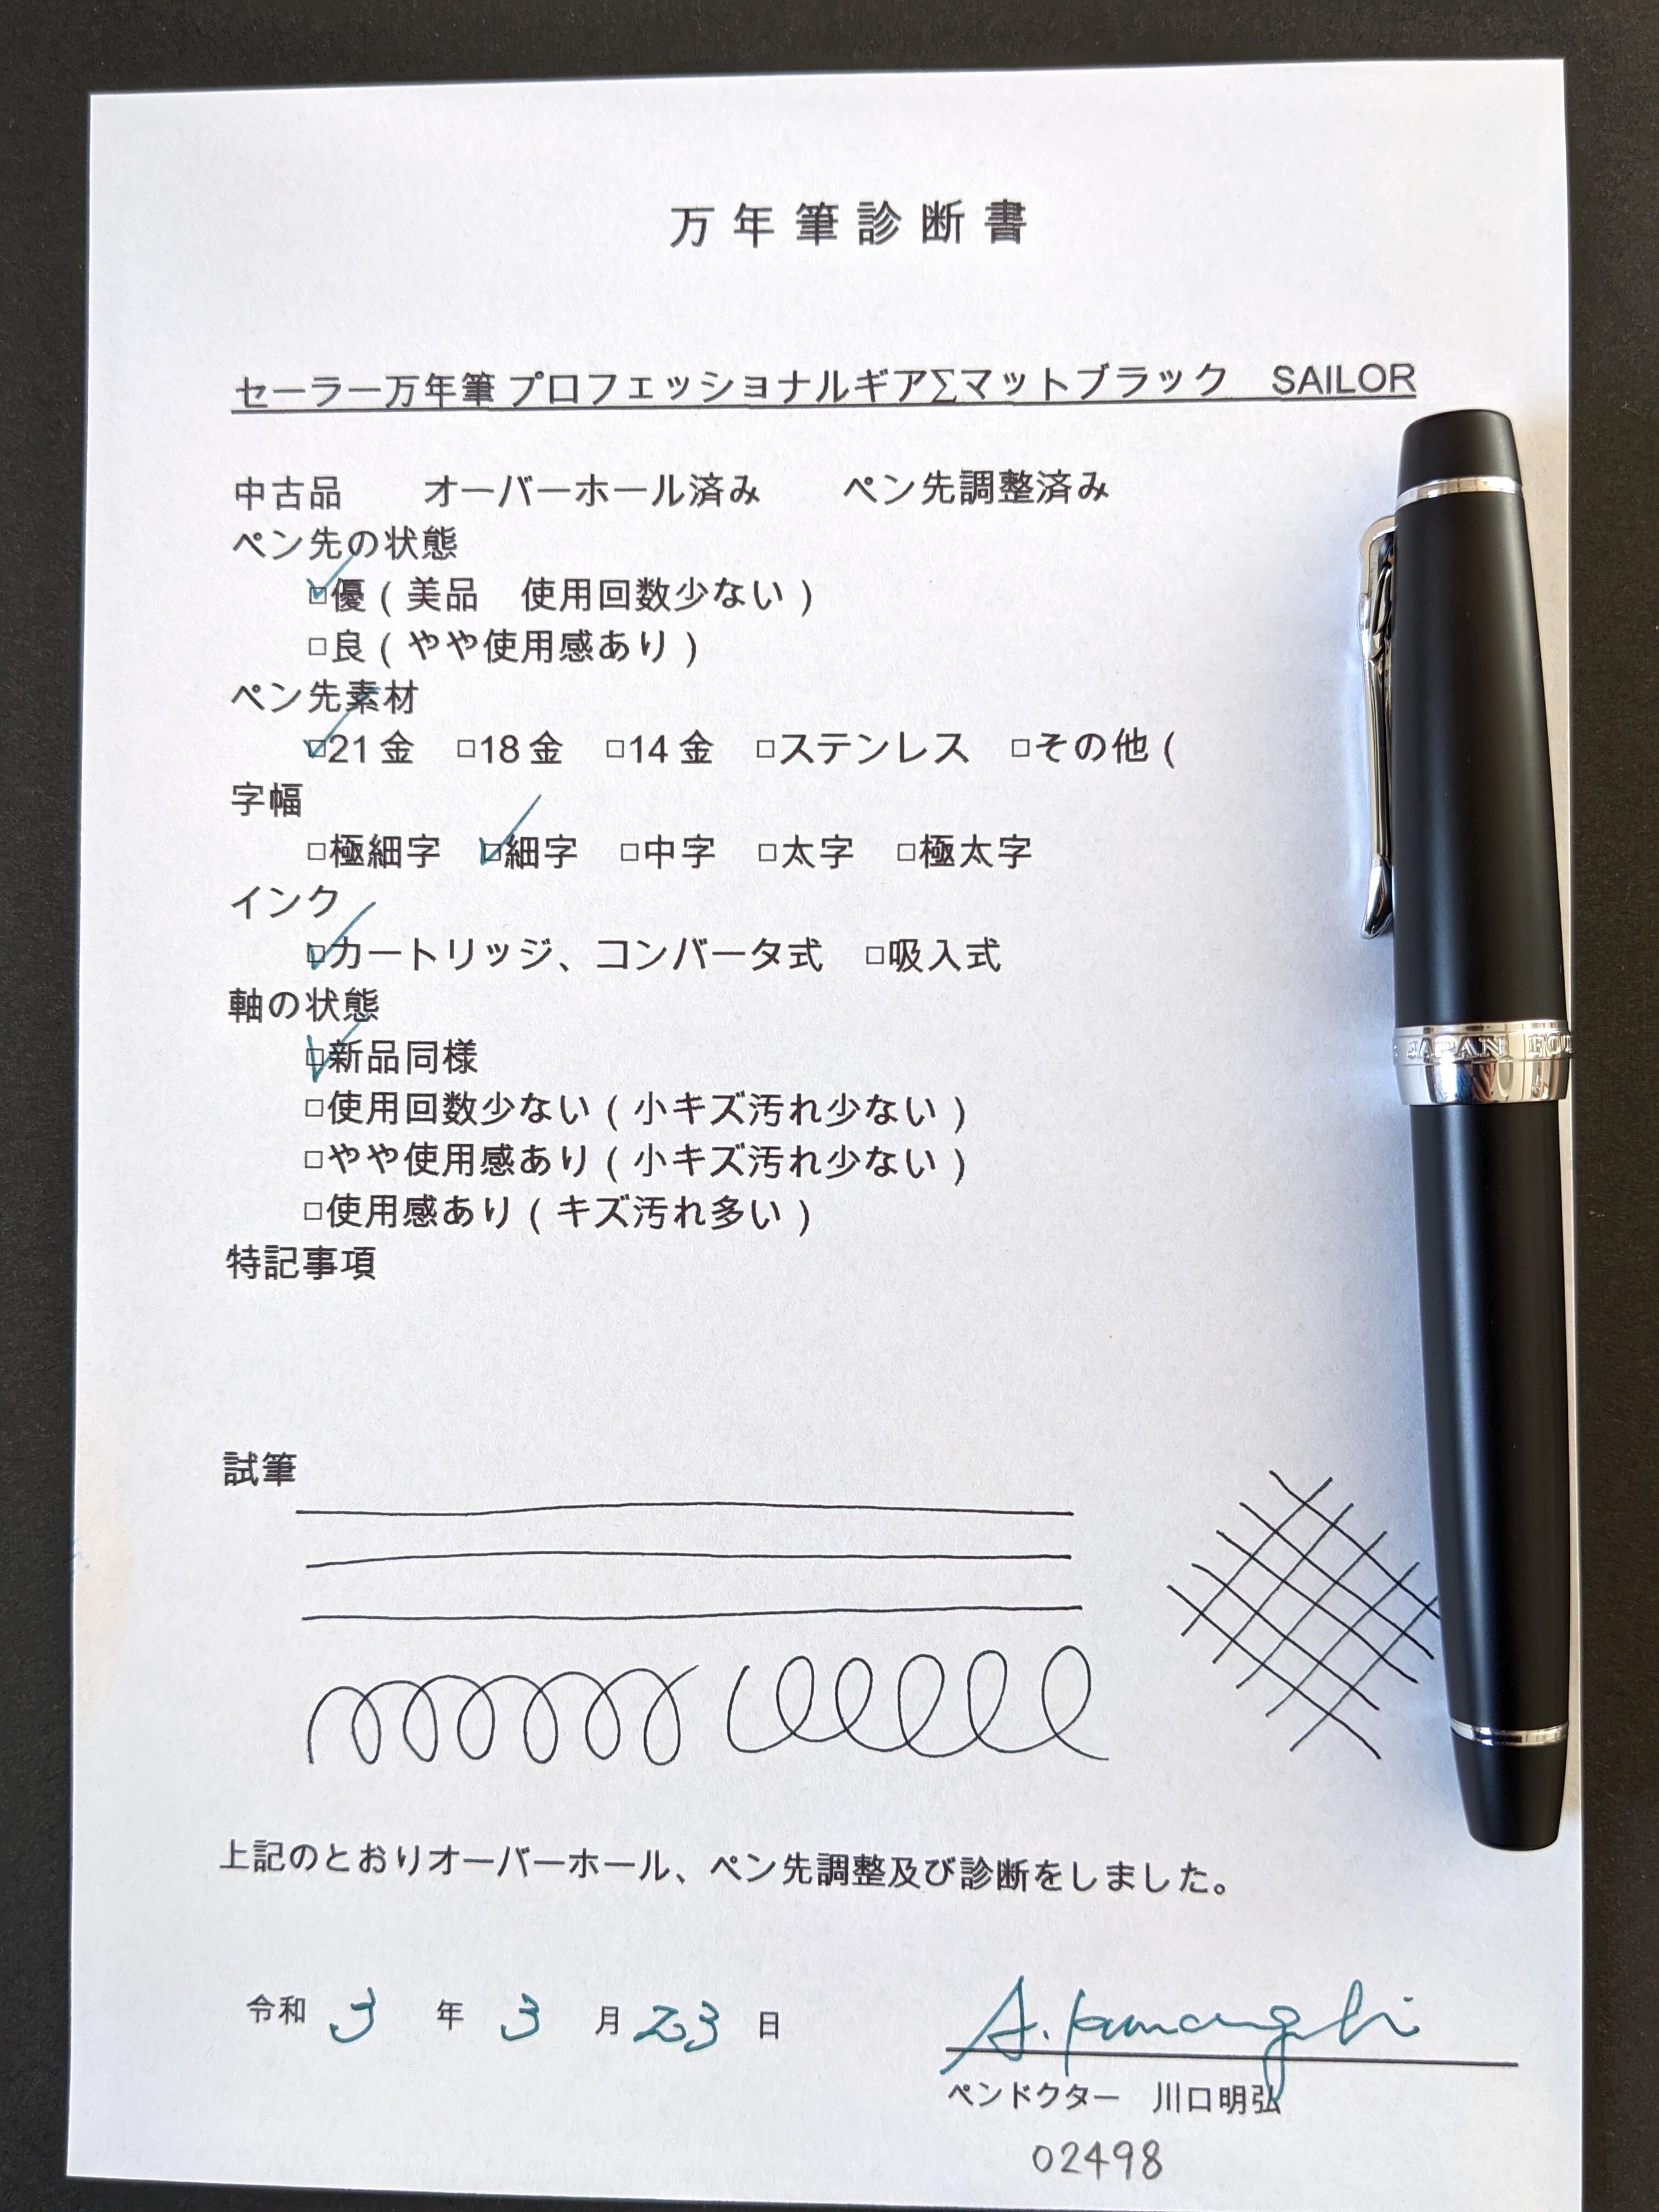 万年筆診断書
セーラー万年筆 プロフェッショナルギア∑マットブラック　SAILOR
中古品　　オーバーホール済み　　ペン先調整済み
ペン先の状態
☑優（美品　使用回数少ない）
□良（やや使用感あり）
ペン先素材
☑21金　□18金　□14金　□ステンレス　□その他（
字幅
□極細字　☑細字　□中字　□太字　□極太字
インク
☑カートリッジ、コンバータ式　□吸入式
軸の状態
☑新品同様
□使用回数少ない（小キズ汚れ少ない）
□やや使用感あり（小キズ汚れ少ない）
□使用感あり（キズ汚れ多い）
特記事項
JAPAN FOU
試筆
上記のとおりオーバーホール、ペン先調整及び診断をしました。
令和 3 年 3 月 23 日
A. Kawaguchi
ペンドクター　川口明弘
02498